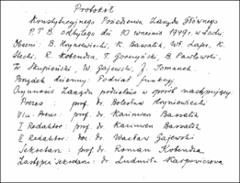 Protokół
Konstytucyjnego Posiedzenia Zarządu Głównego
P.T.B. odbytego dn. 10 września 1949 r. w Łodzi
Obecni: B. Hryniewiecki, K. Bassalik, W. Lapo, K.
Stecki, R. Kobendza, T. Gorczyński, B. Pawłowski,
W. Gajewski, J. Tomanek
Porządek dzienny: Podział funkcji.
Czynności Zarządu podzielono w sposób następujący:
Prezes: prof. dr. Bolesław Hryniewiecki
Vice Prezes: prof. dr. Kazimierz Bassalik
I Redaktor: prof. dr. Kazimierz Bassalik
II Redaktor: Doc. dr. Wacław Gajewski
Sekretarz: prof. dr. Roman Kobendza
Zastępca sekretarza: dr. Ludmiła Karpowiczowa